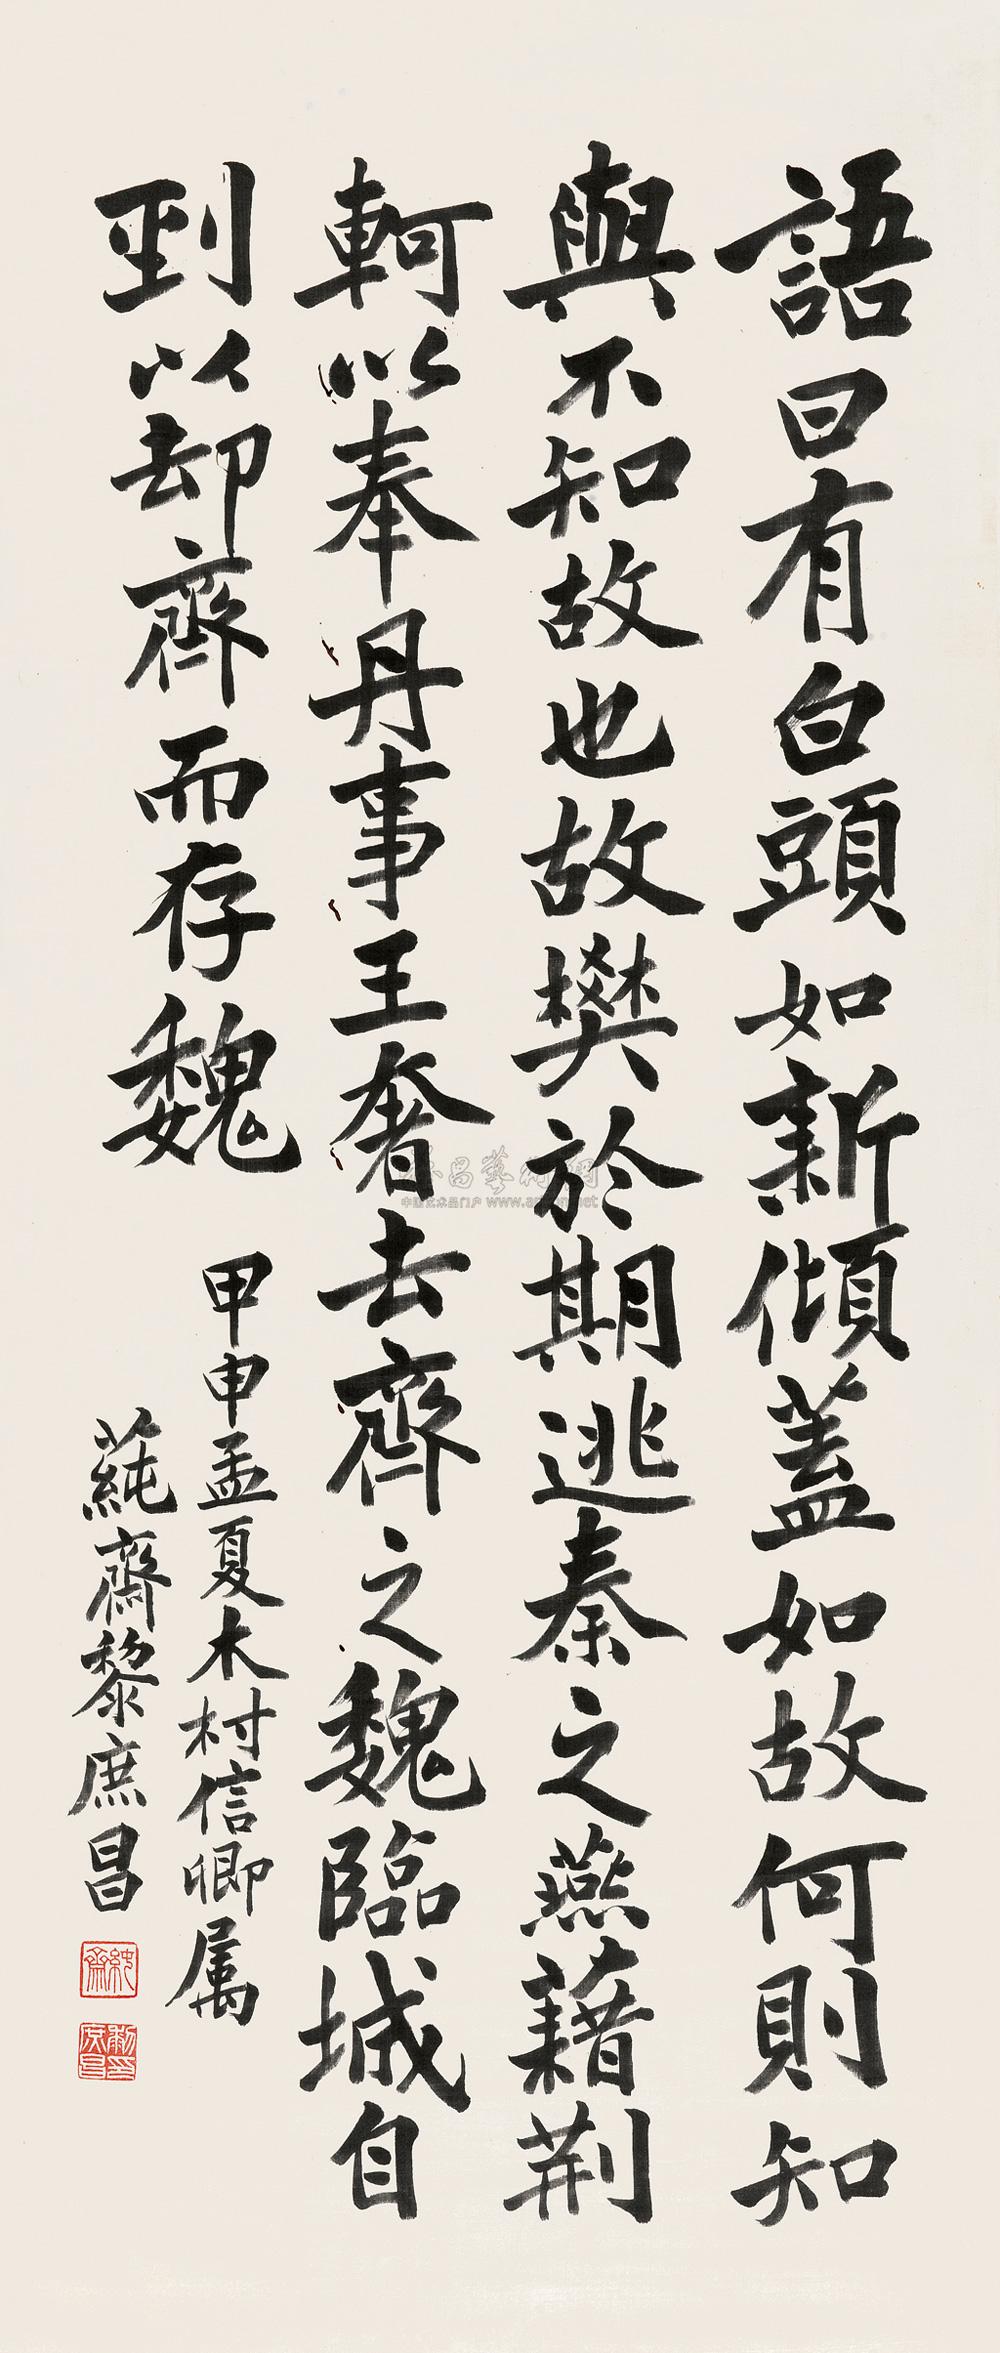 語曰有白頭如新傾蓋如故何則知
與不知故也故樊於期逃秦之燕藉荆
軻以奉丹事王奢去齊之魏臨城自
剄以却齊而存魏
甲申孟夏木村信卿属
蒓齋黎庶昌
純齋
黎庶昌印
中国艺术品门户 www.artron.net